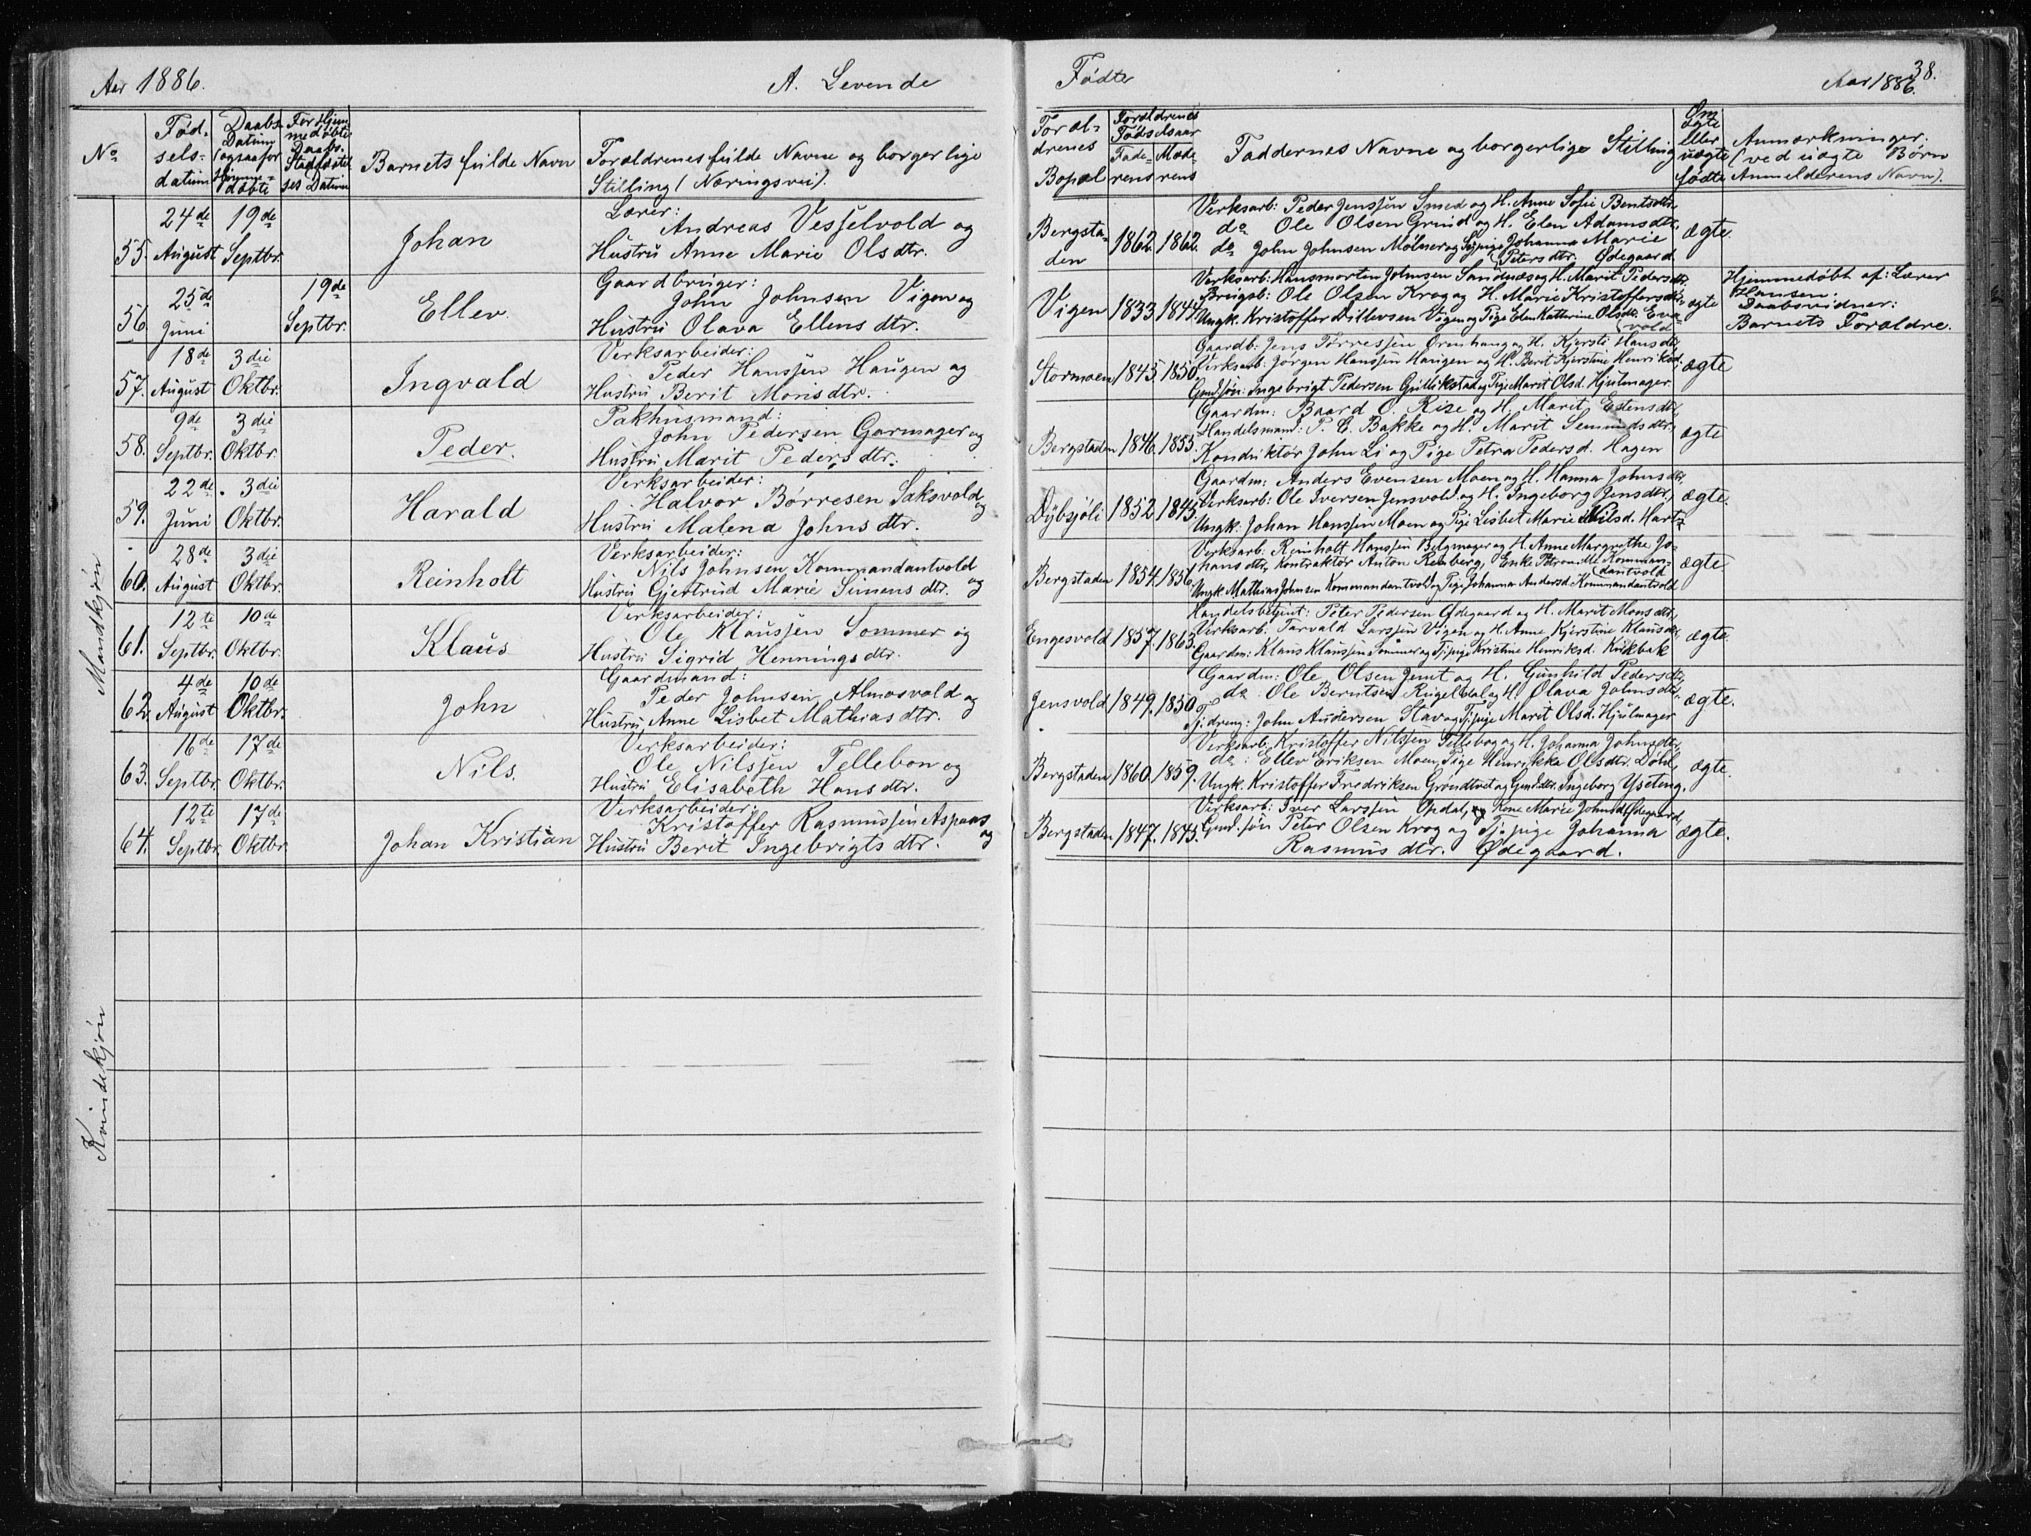 Aar 1886.
A. Levende
Fødte
38.
Aar 1886.
No
Fød-
sels-
datum
Daabs-
Datum
(ogsaa for
Hjemme-
døbte
For Hjem
medøbte
Daabs-
Stadfæstel
ses Datum
Barnets fulde Navn
Forældrenes fulde Navne og borgerlige
Stilling (Næringsvei).
Foræl-
drenes
Bopæl
Forældrenes
Fødselsaar
Fade-
rens
Mode
rens
Faddernes Navne og borgerlige Stilling
Om
ægte
eller
uægte
født
Anmærkninger.
(ved uægte Børn
Anmelderens Navn).
Mandkjøn
55.
24de
August
19de
Septbr.
Johan
Lærer:
Andreas Vesselvold og
Hustru Anne Marie Olsdtr.
Bergsta-
den
1862.
1862.
Verksarb: Peder Jenssen Smed og H. Anne Sofie Bentsdtr,
do Ole Olsen Grind og H. Elen Adamsdtr,
do John Johnsen Mølmer og Tjpige Johanna Marie
Petersdtr. Ødegaard
ægte.
56.
25de
Juni
19de
Septbr.
Ellev
Gaardbruger:
John Johnsen Vigen og
Hustru Olava Ellensdtr.
Vigen
1833.
1844.
Verksarb: Hansmorten Johnsen Sandnæs og H. Marit Pedersdtr.
Brugsb: Ole Olsen Krog og H. Marie Kristoffersdtr.
Ungk. Kristoffer Ditlevsen Vigen og Pige Elen Kathrine Olsdtr. Eva-
vold
ægte
Hjemmedøbt af: Lærer
Hansen:
Daabsvidner:
Barnets Forældre.
57.
18de
August
3die
Oktbr.
Ingvald
Verksarbeider:
Peder Hanssen Haugen og
Hustru Berit Monsdtr.
Stormoen
1845.
1850
Gaardb: Jens Tørressen Ørenhaug og H. Kjersti Hansdtr
Verksarb: Jørgen Hanssen Haugen og H. Berit Kjerstine Henriksd,
Gmdsøn: Ingebrigt Pedersen Gullikstad og Pige Marit Olsd. Hjulmager.
ægte
58.
9de
Septbr.
3die
Oktbr.
Peder.
Pakhusmand:
John Pedersen Garmager og
Hustru Marit Pedersdtr.
Bergstaden
1846.
1855.
Gaardm: Baard O. Rise og H. Marit Estensdtr,
Handelsmand: P. C. Bakke og H. Marit Semundsdtr,
Konduktør John Li og Pige Petra Pedersd. Hagen
ægte
59.
22de
Juni
3die
Oktbr.
Harald
Verksarbeider:
Halvor Børresen Saksvold og
Hustru Malena Johnsdtr.
Dybsjøli
1852
1845
Gaardm: Anders Evensen Moen og H. Hanna Johnsdtr,
Verksarb: Ole Iversen Jensvold og H. Ingeborg Jensdtr,
Ungk: Johan Hanssen Moen og Pige Lisbet Marie Nilsd. Hartz
ægte.
60.
28de
August
3die
Oktbr.
Reinholt
Verksarbeider:
Nils Johnsen Kommandantvold og
Hustru Gjertrud Marie Simensdtr.
Bergstaden
1854.
1856
Verksarb: Reinholt Hanssen Belgmager og H. Anne Margrethe Jo-
hansdtr, Kontraktør Anton Renberg, Enke Petronille Komman-
dantvold
Ungk Mathias Johnsen Kommandantvold og Pige Johanna Andersd. Kommandantvold
ægte
61.
12te
Septbr.
10de
Oktbr.
Klaus
Verksarbeider:
Ole Klaussen Sommer og
Hustru Sigrid Henningsdtr.
Engesvold
1857.
1863.
Handelsbetjent: Peter Pedersen Ødegaard og H. Marit Monsdtr,
Verksarb: Tarvald Larssen Vigen og H. Anne Kjerstine Klausdtr,
Gaardm: Klaus Klaussen Sommer og Tjpige Kristine Henriksd. Kvikbak
ægte.
62.
4de
August
10de
Oktbr.
John
Gaardmand:
Peder Johnsen Almosvold og
Hustru Anne Lisbet Mathiasdtr.
Jensvold
1849.
1850
Gaardm: Ole Olsen Jemt og H. Gunhild Pedersdtr
do: Ole Berntsen Rugeldal og H. Olava Johnsdtr,
Tj: dreng: John Andersen Stav og Tjpige Marit Olsd. Hjulmager
ægte.
63.
16de
Septbr.
17de
Oktbr.
Nils.
Verksarbeider:
Ole Nilssen Tellebon og
Hustru Elisabeth Hansdtr.
Bergstaden
1860.
1859.
Verksarb: Kristoffer Nilssen Tellebog og H. Johanna Johnsdtr,
do: Ellev Eriksen Moen, Pige Henrikke Olsdtr. Døhl,
Ungk. Kristoffer Fredriksen Grøndtvet og Gmd.dtr. Ingeborg Ysteng.
ægte.
64.
12te
Septbr.
17de
Oktbr.
Johan Kristian
Verksarbeider:
Kristoffer Rasmussen Aspaas og
Hustru Berit Ingebrigtsdtr.
Bergstaden
1847.
1845.
Verksarb: Iver Larssen Opdal, og Kone Marie Johnsd. Ødegaard,
Gmd.søn Peter Olsen Krog og Tj.pige Johanna
Rasmusdtr. Ødegaard.
ægte.
Kvindekjøn